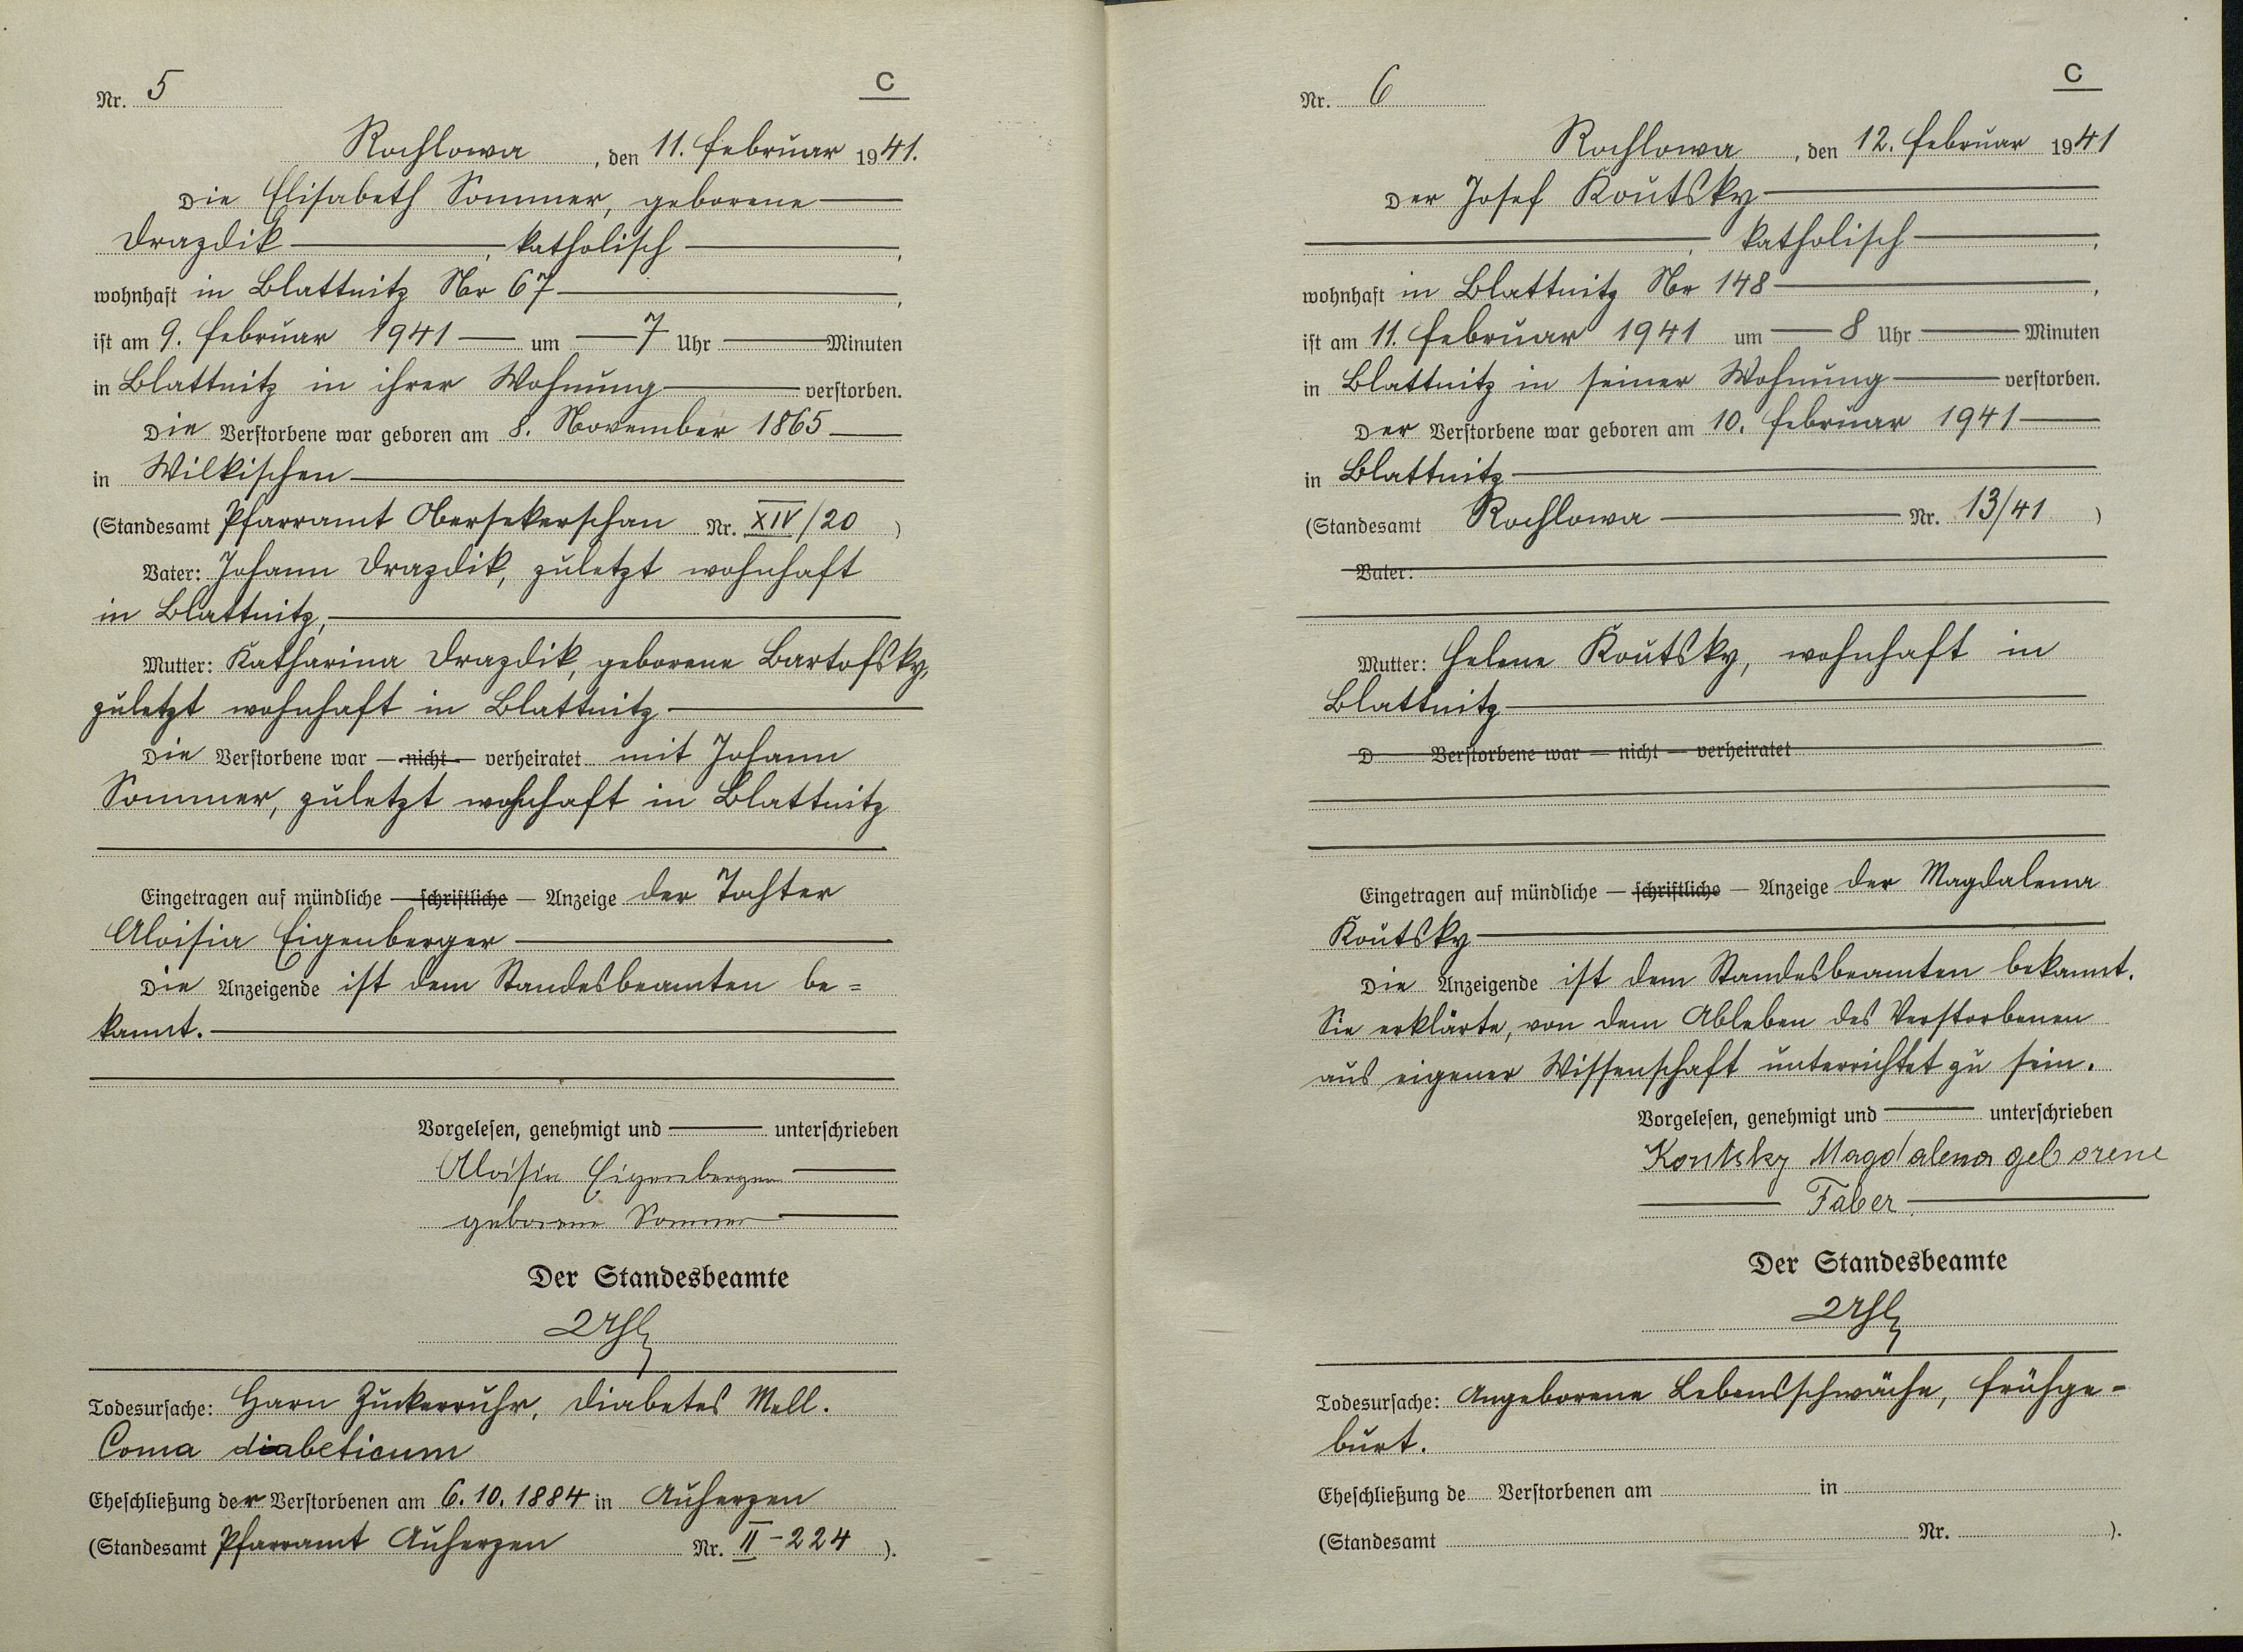 Nr. 5
C
Rochlowa, den 11. Februar 1941.
Die Elisabeth Sommer, geborene
Drazdik, katholisch,
wohnhaft in Blattnitz Nr 67,
ist am 9. Februar 1941 um 7 Uhr Minuten
in Blattnitz in ihrer Wohnung verstorben.
Die Verstorbene war geboren am 8. November 1865
in Wilkischen
(Standesamt Pfarramt Obersekerschan Nr. XIV/20)
Vater: Johann Drazdik, zuletzt wohnhaft
in Blattnitz,
Mutter: Katharina Drazdik, geborene Bartofsky,
zuletzt wohnhaft in Blattnitz
Die Verstorbene war — nicht — verheiratet mit Johann
Sommer, zuletzt wohnhaft in Blattnitz
Eingetragen auf mündliche — schriftliche — Anzeige der Tochter
Aloisia Eigenberger
Die Anzeigende ist dem Standesbeamten be=
kannt.
Vorgelesen, genehmigt und unterschrieben
Aloisia Eigenberger
geborene Sommer
Der Standesbeamte
Todesursache: Harn Zuckerruhr, Diabetes Mell.
Coma diabeticum
Eheschließung der Verstorbenen am 6.10.1884 in Auherzen
(Standesamt Pfarramt Auherzen Nr. II-224).
Nr. 6
C
Rochlowa, den 12. Februar 1941
Der Josef Koutsky
, katholisch,
wohnhaft in Blattnitz Nr 148,
ist am 11. Februar 1941 um 8 Uhr Minuten
in Blattnitz in seiner Wohnung verstorben.
Der Verstorbene war geboren am 10. Februar 1941
in Blattnitz
(Standesamt Rochlowa Nr. 13/41)
Vater:
Mutter: Helene Koutsky, wohnhaft in
Blattnitz
D Verstorbene war — nicht — verheiratet
Eingetragen auf mündliche — schriftliche — Anzeige der Magdalena
Koutsky
Die Anzeigende ist dem Standesbeamten bekannt.
Sie erklärte, von dem Ableben des Verstorbenen
aus eigener Wissenschaft unterrichtet zu sein.
Vorgelesen, genehmigt und unterschrieben
Koutsky Magdalena geborene
Faber
Der Standesbeamte
Todesursache: Angeborene Lebensschwäche, Frühge-
burt.
Eheschließung de Verstorbenen am in
(Standesamt Nr. ).